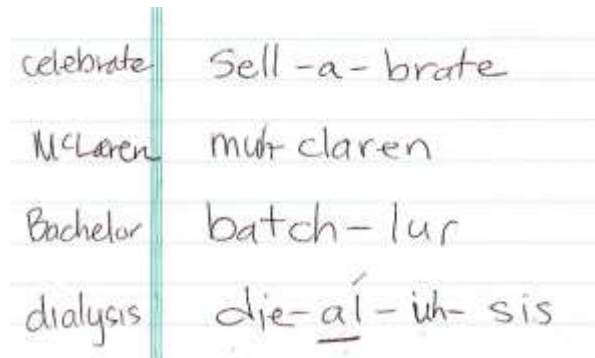 celebrate Sell-a-brate
McLaren muh claren
Bachelor batch-lur
dialysis die-al-uh-sis